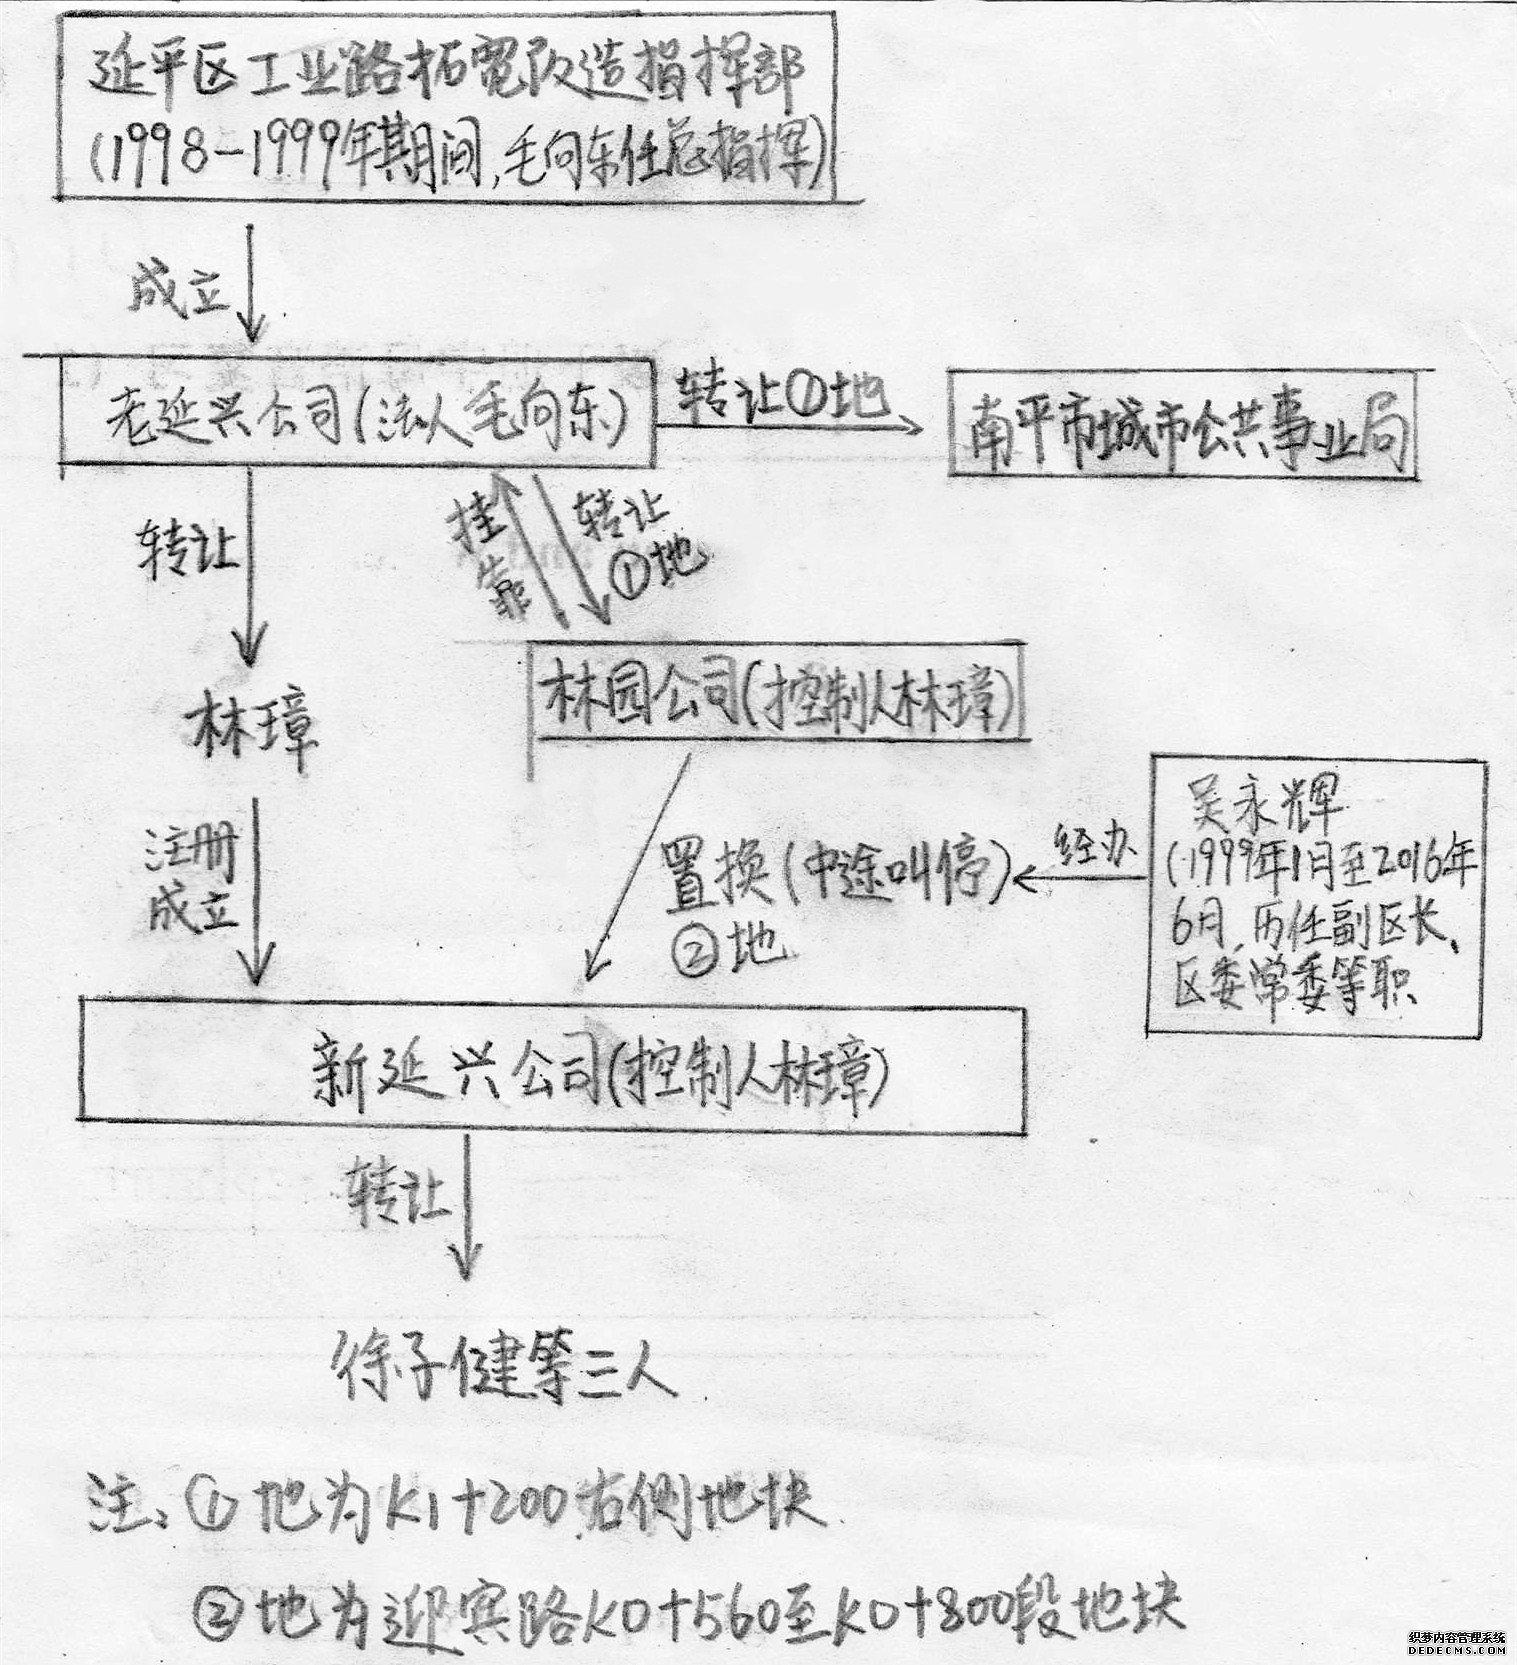 延平区工业路拓宽改造指挥部
(1998-1999年期间,毛向东任总指挥)
成立
老延兴公司(法人毛向东)
转让①地
南平市城市公共事业局
转让
挂靠
转让
①地
林璋
林园公司(控制人林璋)
注册
成立
置换(中途叫停)
②地
经办
吴永辉
(1999年1月至2016年
6月,历任副区长、
区委常委等职
新延兴公司(控制人林璋)
转让
徐子健等三人
注:①地为K1+200右侧地块
②地为迎宾路K0+560至K0+800段地块
织梦内容管理系统
DEDECMS.COM